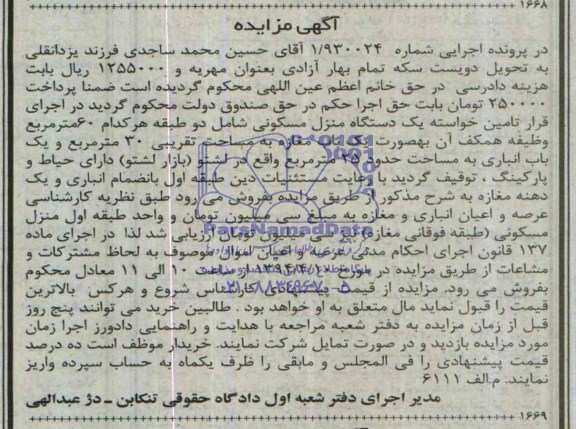 ۱۶۶۸
آگهی مزایده
در پرونده اجرایی شماره ۱/۹۳۰۰۲۴ آقای حسین محمد ساجدی فرزند یزدانقلی
به تحویل دویست سکه تمام بهار آزادی بعنوان مهریه و ۱۲۵۵۰۰۰ ریال بابت
هزینه دادرسی در حق خانم اعظم عین اللهی محکوم گردیده است ضمنا پرداخت
۲۵۰۰۰۰ تومان بابت حق اجرا حکم در حق صندوق دولت محکوم گردید در اجرای
قرار تامین خواسته یک دستگاه منزل مسکونی شامل دو طبقه هرکدام ۶۰مترمربع
وظیفه همکف آن بهصورت یک باب مغازه به مساحت تقریبی ۳۰ مترمربع و یک
باب انباری به مساحت حدود ۲۵ مترمربع واقع در لشتو (بازار لشتو) دارای حیاط و
پارکینگ ، توقیف گردید با رعایت مستثنیات دین طبقه اول بانضمام انباری و یک
دهنه مغازه به شرح مذکور از طریق مزایده بفروش می رود طبق نظریه کارشناسی
عرصه و اعیان انباری و مغازه به مبلغ سی میلیون تومان و واحد طبقه اول منزل
مسکونی (طبقه فوقانی مغازه) به سی میلیون تومان ارزیابی شد لذا در اجرای ماده
۱۳۷ قانون اجرای احکام مدنی عرصه و اعیان اموال موصوف به لحاظ مشترکات و
مشاعات از طریق مزایده در ۱۳۹۴/۴/۱ از ساعت ۱۰ الی ۱۱ معادل محکوم
بفروش می رود. مزایده از قیمت پیشنهادی کارشناس شروع و هرکس بالاترین
قیمت را قبول نماید مال متعلق به او خواهد بود . طالبین خرید می توانند پنج روز
قبل از زمان مزایده به دفتر شعبه مراجعه با هدایت و راهنمایی دادورز اجرا زمان
مورد مزایده بازدید و در صورت تمایل شرکت نمایند. خریدار موظف است ده درصد
قیمت پیشنهادی را فی المجلس و مابقی را ظرف یکماه به حساب سپرده واریز
نمایند. م.الف ۶۱۱۱
مدیر اجرای دفتر شعبه اول دادگاه حقوقی تنکابن ـ دژ عبدالهی
۱۶۶۹
ParsNamadData
۰۲۱-۸۸۳۴۹۶۷۰-۵